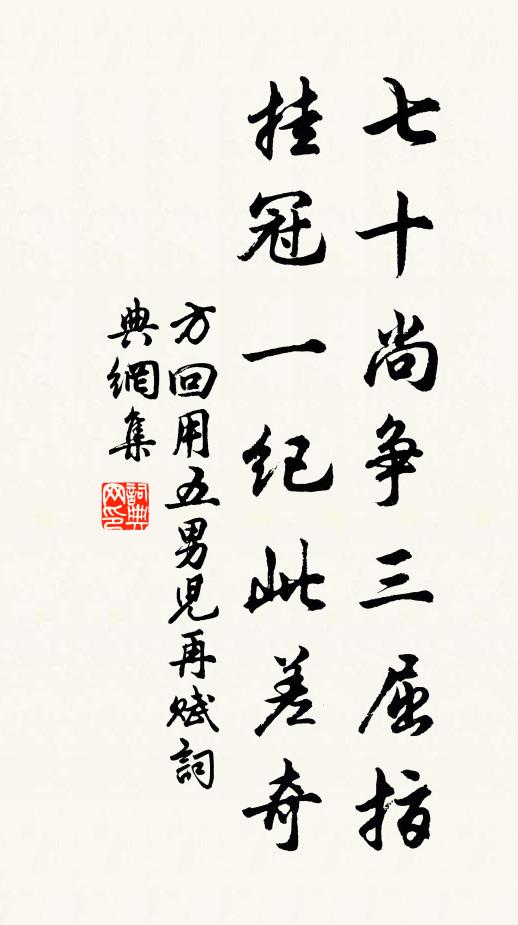 七十尚争三屈指
挂冠一纪此差奇
方回用五男児再赋詞
典網集
詞典网印